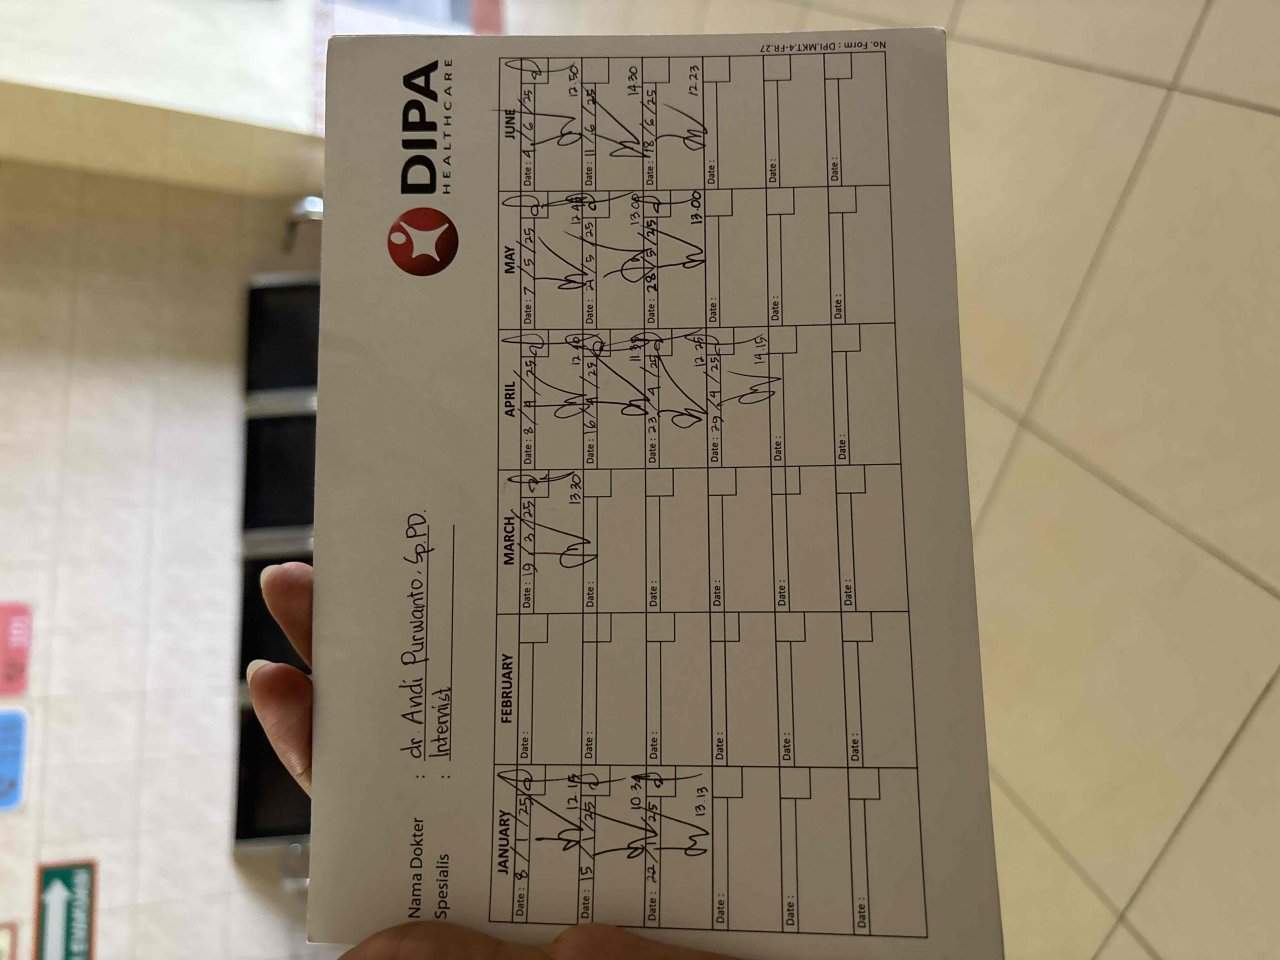 DIPA
HEALTHCARE
Nama Dokter : dr. Andi Purwanto, Sp.PD.
Spesialis : Internist
JANUARY FEBRUARY MARCH APRIL MAY JUNE
Date : 8/1/25 Date : Date : 19/3/25 Date : 8/4/25 Date : 7/5/25 Date : 4/6/25
12.15 13.30 12.50
Date : 15/1/25 Date : Date : Date : 16/4/25 Date : 21/5/25 Date : 11/6/25
10.34 13.00 14.30
Date : 22/1/25 Date : Date : Date : 23/4/25 Date : 28/5/25 Date : 18/6/25
13.13 12.25 13.00 12.23
Date : Date : Date : Date : 29/4/25 Date : Date :
14.15
Date : Date : Date : Date : Date : Date :
Date : Date : Date : Date : Date : Date :
No. Form : DPI.MKT.4-FR.27